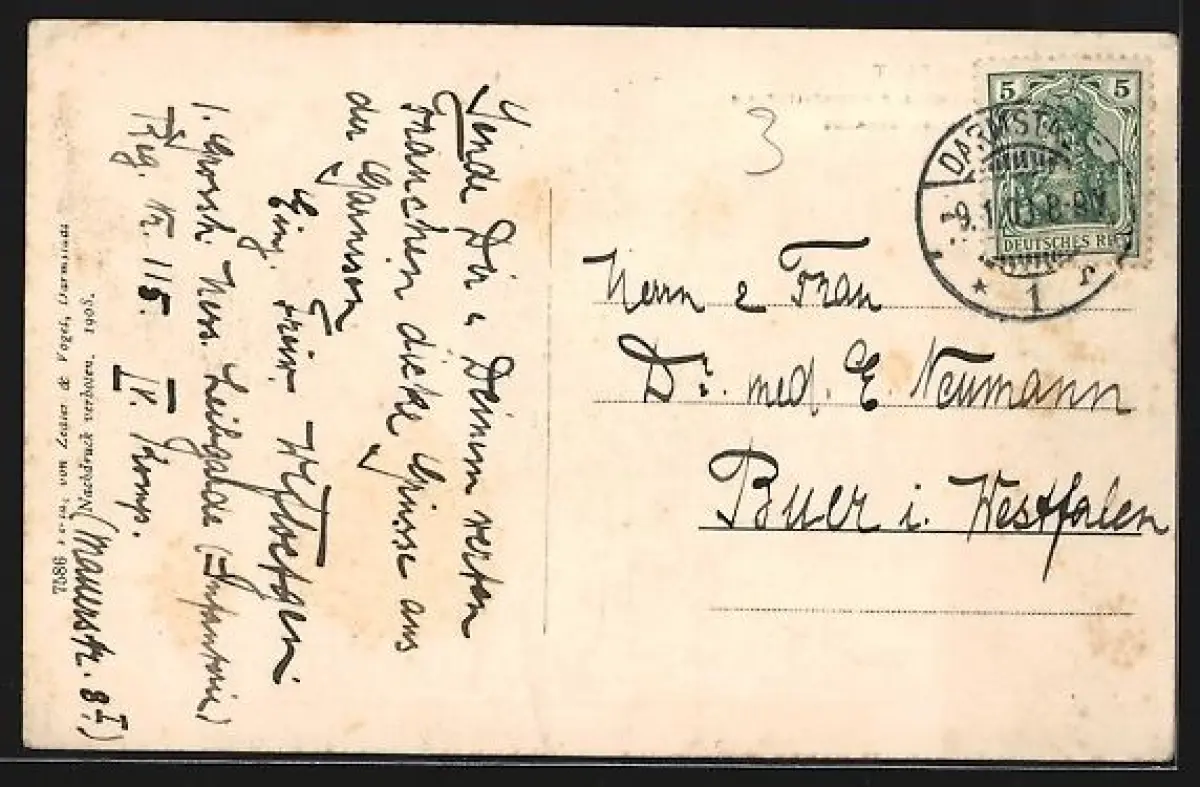 Sende Dir u Deinem werten
Frauchen dicke Grüsse aus
der Garnison
Einj. Freiw.
1. Grossh. Hess. Leibgarde (=Infanterie)
Reg. Nr. 115. IV. Komp.
(Mauerstr. 8 I.)
7586 von Zedler & Vogel, Darmstadt
Nachdruck verboten. 1908.
3
5 5
DEUTSCHES REICH
DARMSTADT
9.1. 8-9V
* 1
Herrn & Frau
Dr. med. E. Neumann
Buer i. Westfalen